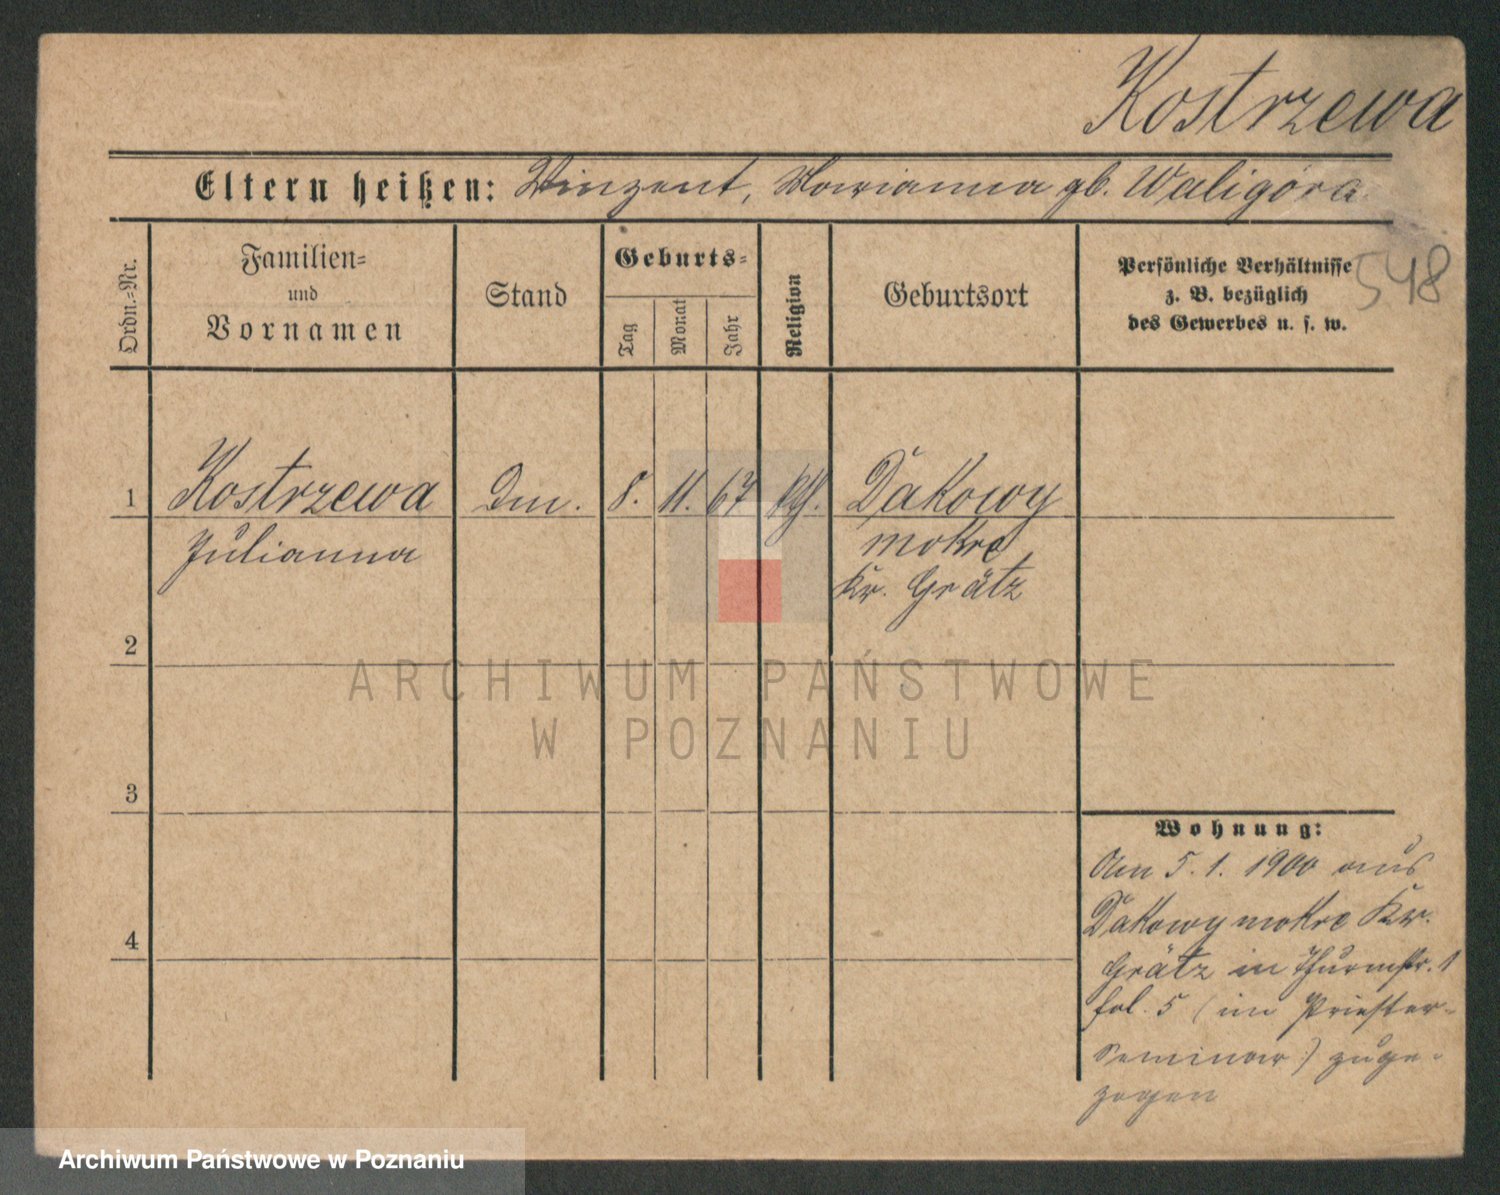 Kostrzewa
Eltern heißen: Vinzent, Marianna gb. Waligóra
548
Ordn.-Nr.
Familien-
und
Vornamen
Stand
Geburts-
Tag
Monat
Jahr
Religion
Geburtsort
Persönliche Verhältnisse
z. B. bezüglich
des Gewerbes u. s. w.
1 Kostrzewa 8. 11. 67 Dakowy
Julianna mokre
Kr. Grätz
2
3
4
Wohnung:
Am 5. 1. 1900 aus
Dakowy mokre Kr.
Grätz in Thurmstr. 1
fol. 5 (im Priester-
Seminar) zuge-
zogen
ARCHIWUM PAŃSTWOWE
W POZNANIU
Archiwum Państwowe w Poznaniu